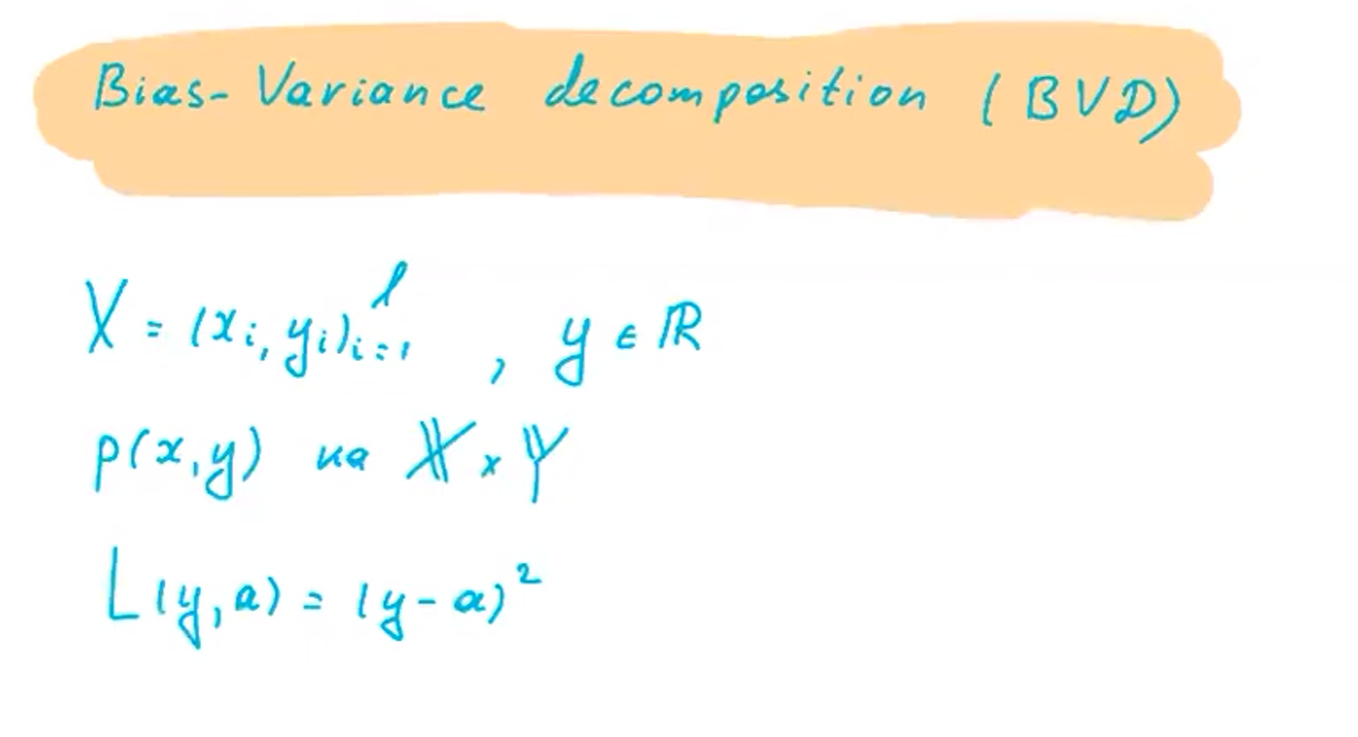 Bias-Variance decomposition (BVD)
X = (xᵢ, yᵢ)ᵢ₌₁ˡ , y ∈ ℝ
p(x,y) на 𝕏 × 𝕐
L(y,a) = (y-a)²